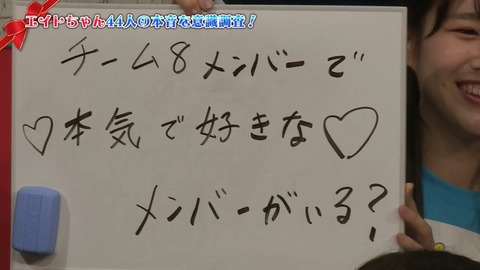 エイトちゃん44人の本音な意識調査！
チーム8メンバーで
♡本気で好きな♡
メンバーがいる？